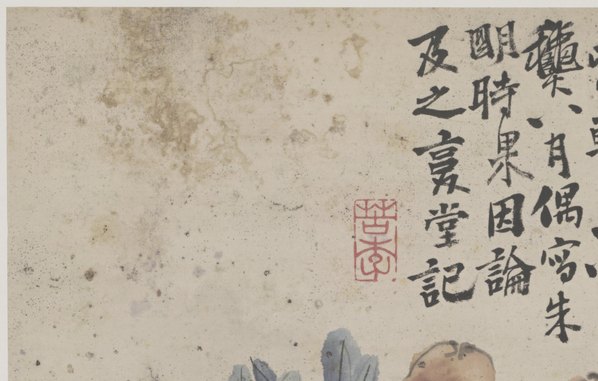 八月偶寫朱
明時果因論
及之堂記
苦李